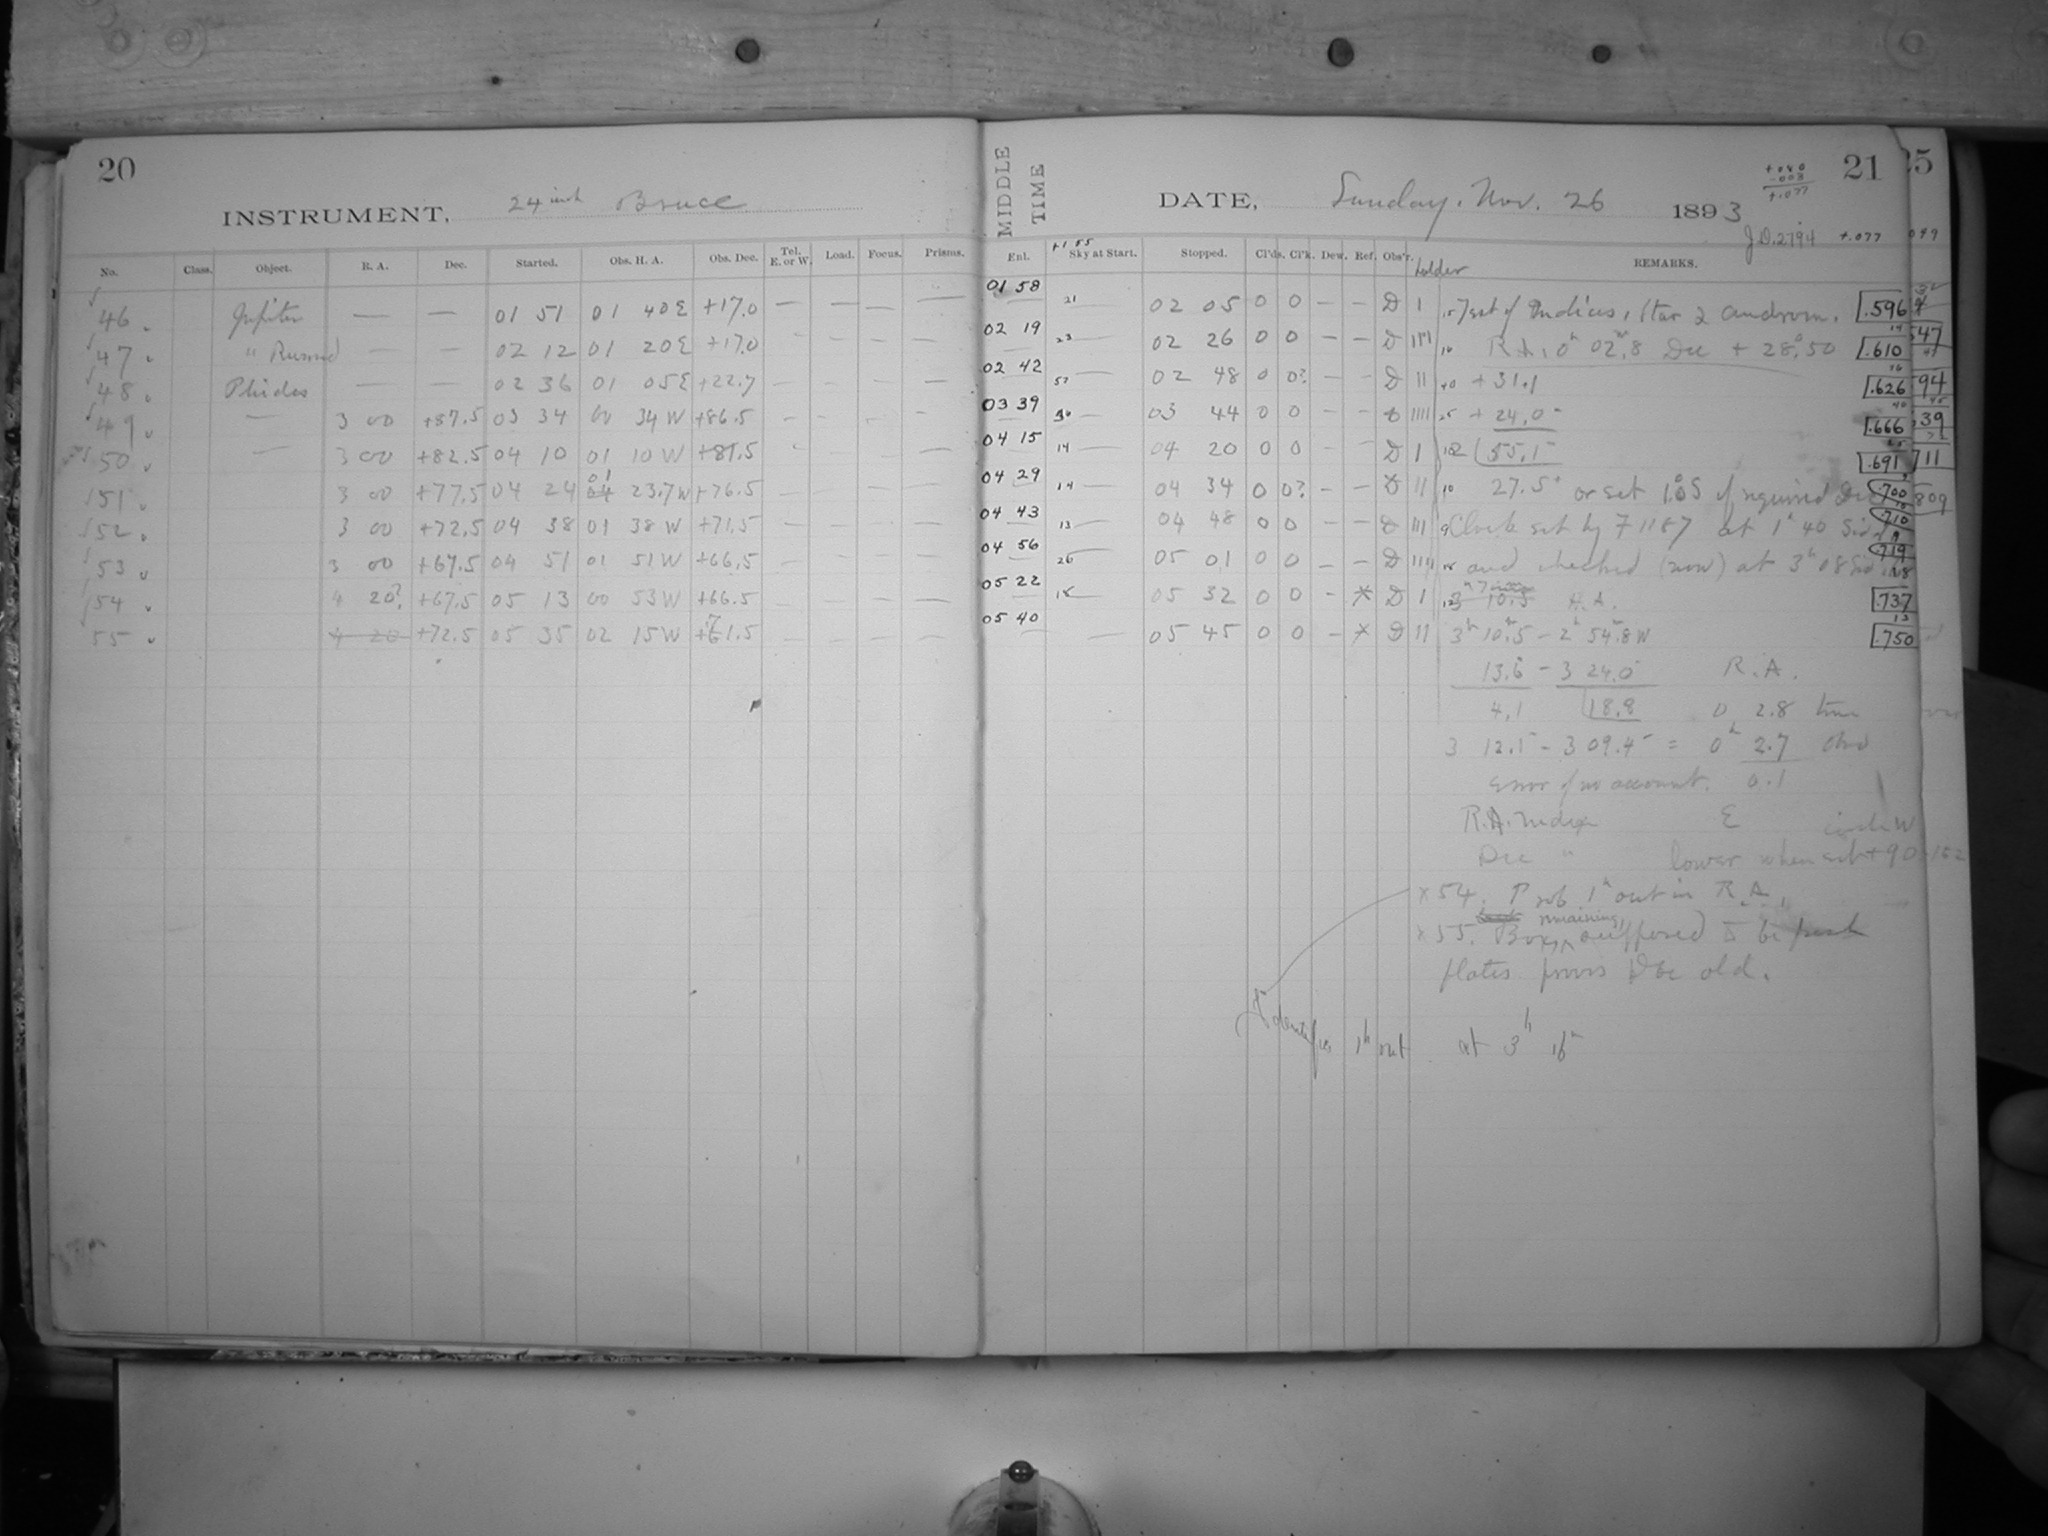 20
INSTRUMENT, 24 inch Bruce
No. Class. Object. R. A. Dec. Started. Obs. H. A. Obs. Dec. Tel. E. or W. Load. Focus. Prisms.
46 Jupiter — — 01 51 01 40 E +17.0 — — — —
47 " — — 02 12 01 20 E +17.0
48 — — 02 36 01 05 E +22.7 — — — —
49 — 3 00 +87.5 03 34 00 34 W +86.5
50 — 3 00 +82.5 04 10 01 10 W +81.5
51 3 00 +77.5 04 24 01 23.7 W +76.5
52 3 00 +72.5 04 38 01 38 W +71.5
53 3 00 +67.5 04 51 01 51 W +66.5
54 4 20? +67.5 05 13 00 53 W +66.5
55 4 20 +72.5 05 35 02 15 W +71.5
MIDDLE TIME
DATE, Sunday, Nov. 26 1893
21
+.080
-.003
+.077
J.D. 2794 +.077
+1 55
Enl. Sky at Start. Stopped. Cl'ds. Cl'k. Dew. Ref. Obs'r. holder REMARKS.
01 58 21 02 05 0 0 — — D 1 set of Indices, Star 2 androm. .596
02 19 23 02 26 0 0 — — D R.A. 0h 02m.8 Dec + 28°.50 .610
02 42 57 02 48 0 0? — — D 11 + 31.1 .626
03 39 36 03 44 0 0 — — D 1111 + 24.0 .666
04 15 14 04 20 0 0 — — D 1 2 55.1 .691
04 29 14 04 34 0 0? — — D 11 27.5 or set 1.05 if required Dec .700
04 43 13 04 48 0 0 — — D 111 Clock set by F 1187 at 1h 40 Sid .710
04 56 26 05 01 0 0 — — D 1111 and checked (now) at 3h 08 Sid .719
05 22 18 05 32 0 0 — * D 1 3 10.5 H.A. .737
05 40 — 05 45 0 0 — * D 11 3h 10m.5 – 2h 54m.8 W .750
13.6 – 3 24.0 R.A.
4.1 18.8 0 2.8 true
3 12.1 – 3 09.4 = 0h 2.7 obsd
error of no account. 0.1
R.A. Index E circle W
Dec " lower when set +90
x 54. Prob 1h out in R.A.
x 55. Box, remaining, supposed to be
plates proves to be old.
Identifies 1h out at 3h 16m
25